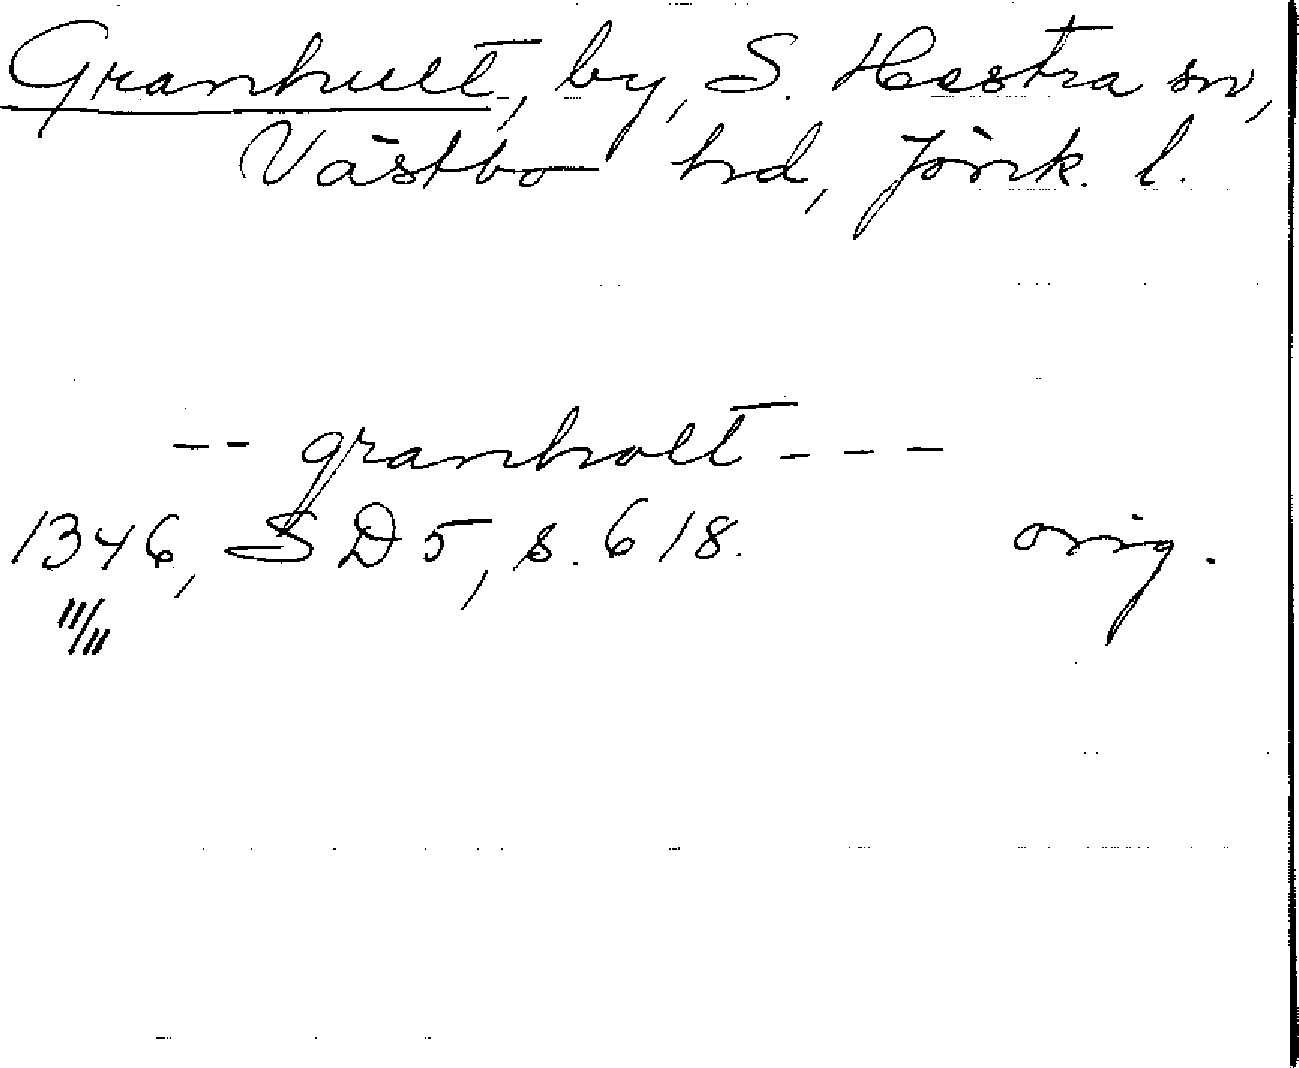 Granhult, by, S. Hestra sn,
Västbo hd, Jönk. l.
-- granholt ---
1346, SD 5, s. 618. orig.
11/11